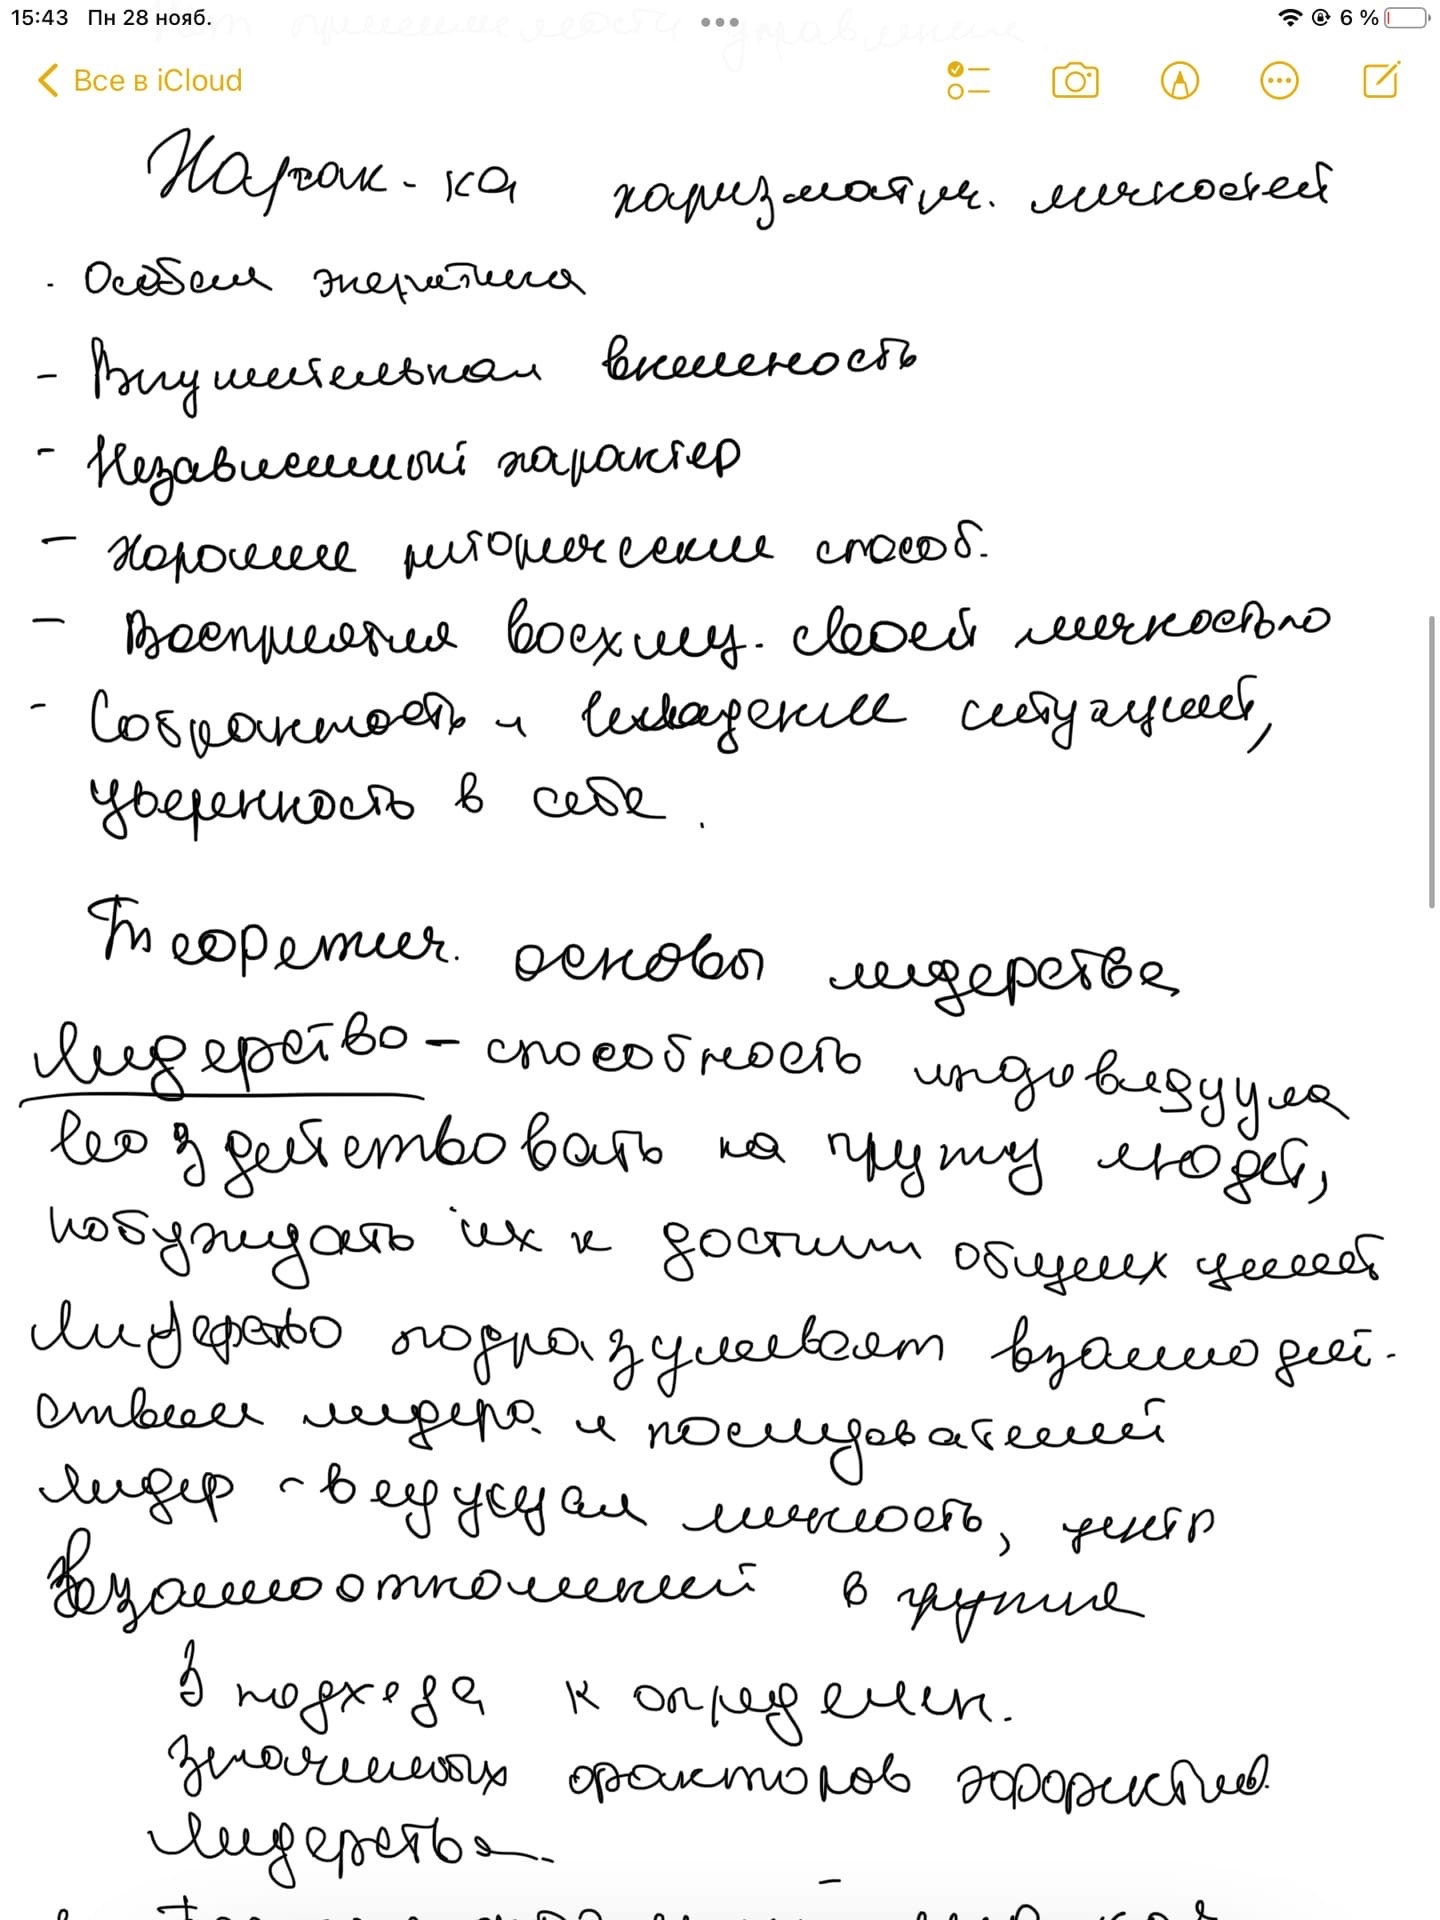 15:43 Пн 28 нояб. 6 %
Все в iCloud
Харак-ка харизматич. личностей
. Особая энергетика
- Внушительная внешность
- Независимый характер
- Хорошие риторические способ.
- Восприятия восхищ. своей личностью
- Собранность и владении ситуацией,
уверенность в себе.
Теоретич. основы лидерства
Лидерство - способность индоведуула
воздействовать на группу людей,
побуждать их к достиж общих целей
Лидерство подразумевает взаимодей-
ствие лидера и последователей
лидер - ведущая личность, центр
взаимоотношений в группе
3 подхода к определен.
значимых факторов эффектив.
лидерства.